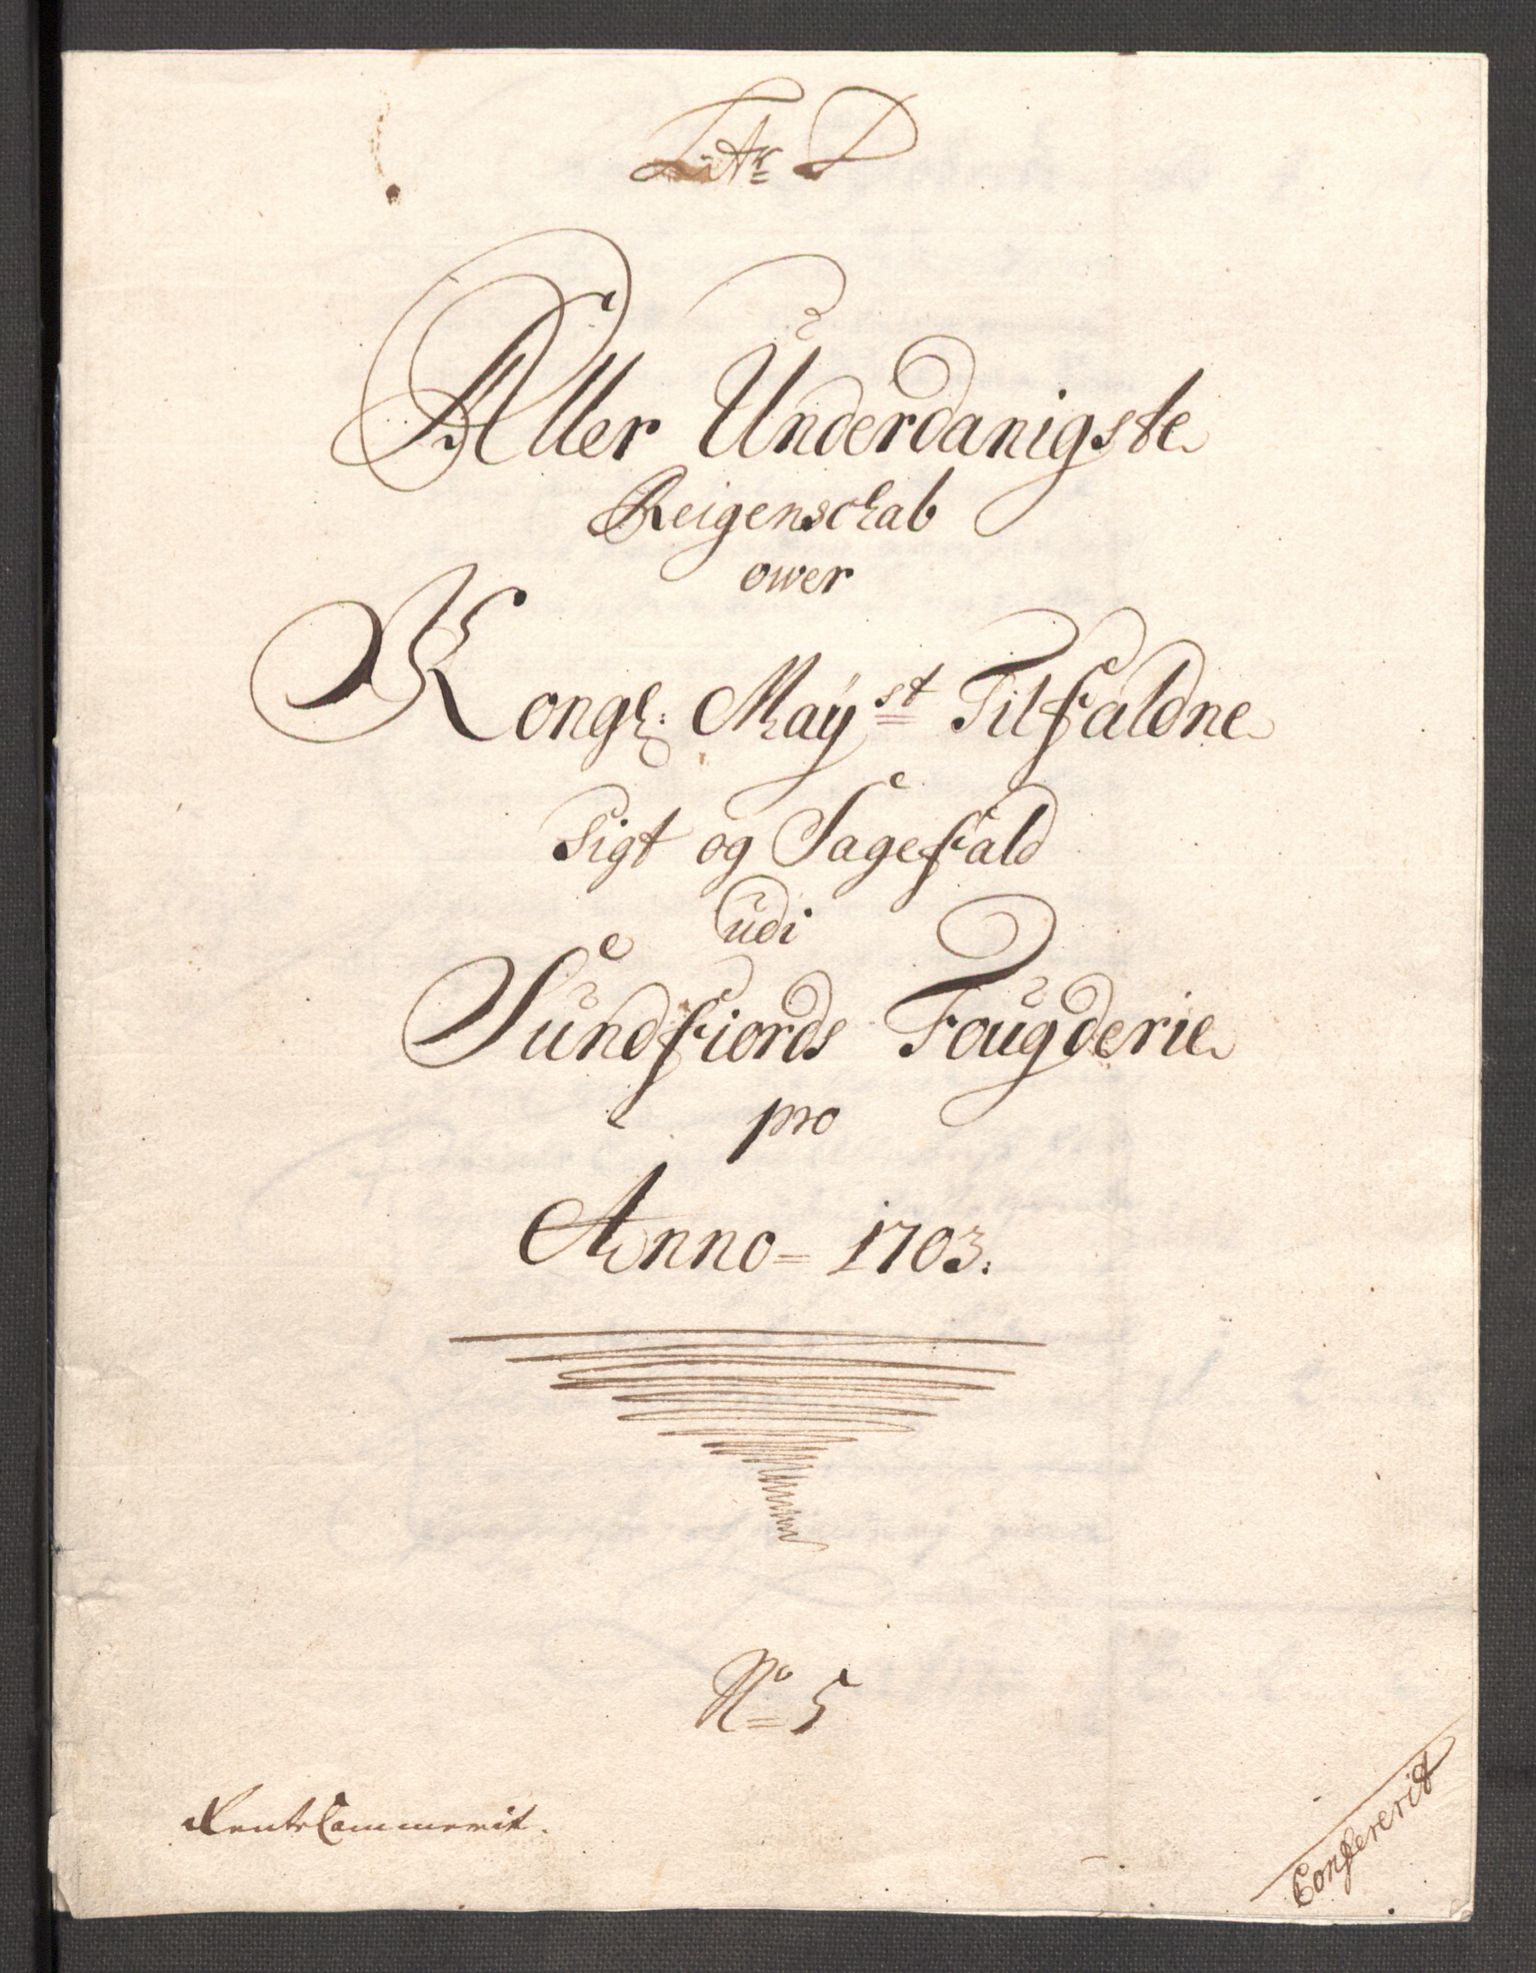 Litr D
Aller Underdanigste
Reigenschab
ower
Kongl: Mayst Tilfaldne
Sigt og Sagefald
udi
Sundfiords Fougderie
pro
Anno = 1703.
No = 5
RenteCammerit.
Confererit